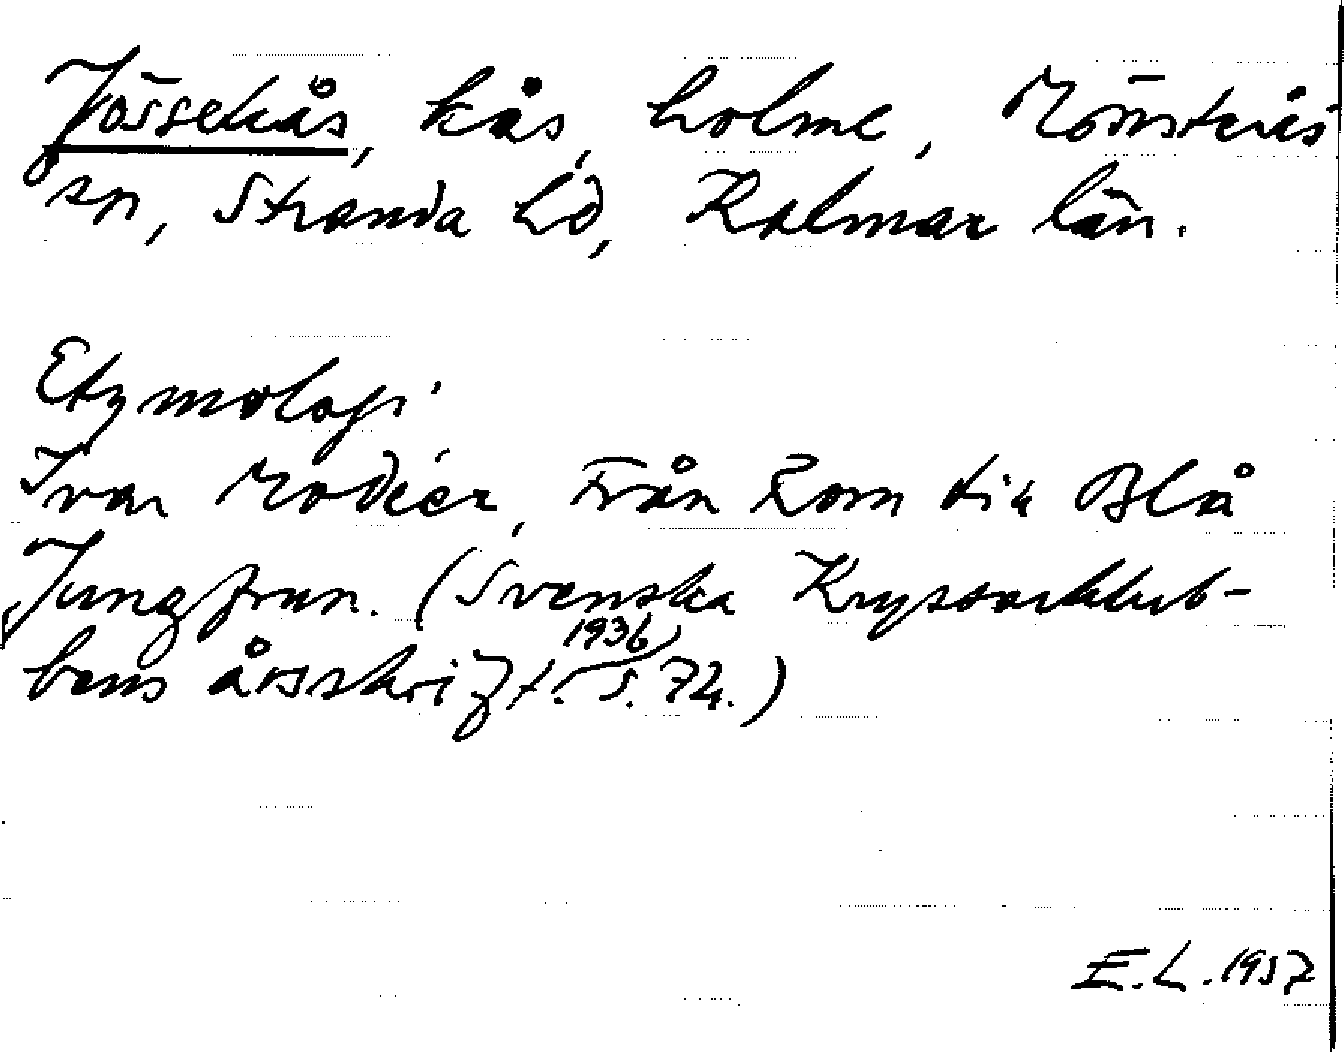 Jössekås, kås, holme, Mönsterås
sn, Stranda hd, Kalmar län.
Etymologi
Ivar Modéer, Från Rom till Blå
Jungfrun. (Svenska Kryssarklub-
1936
bens årsskrift. s. 72.)
E.L. 1957